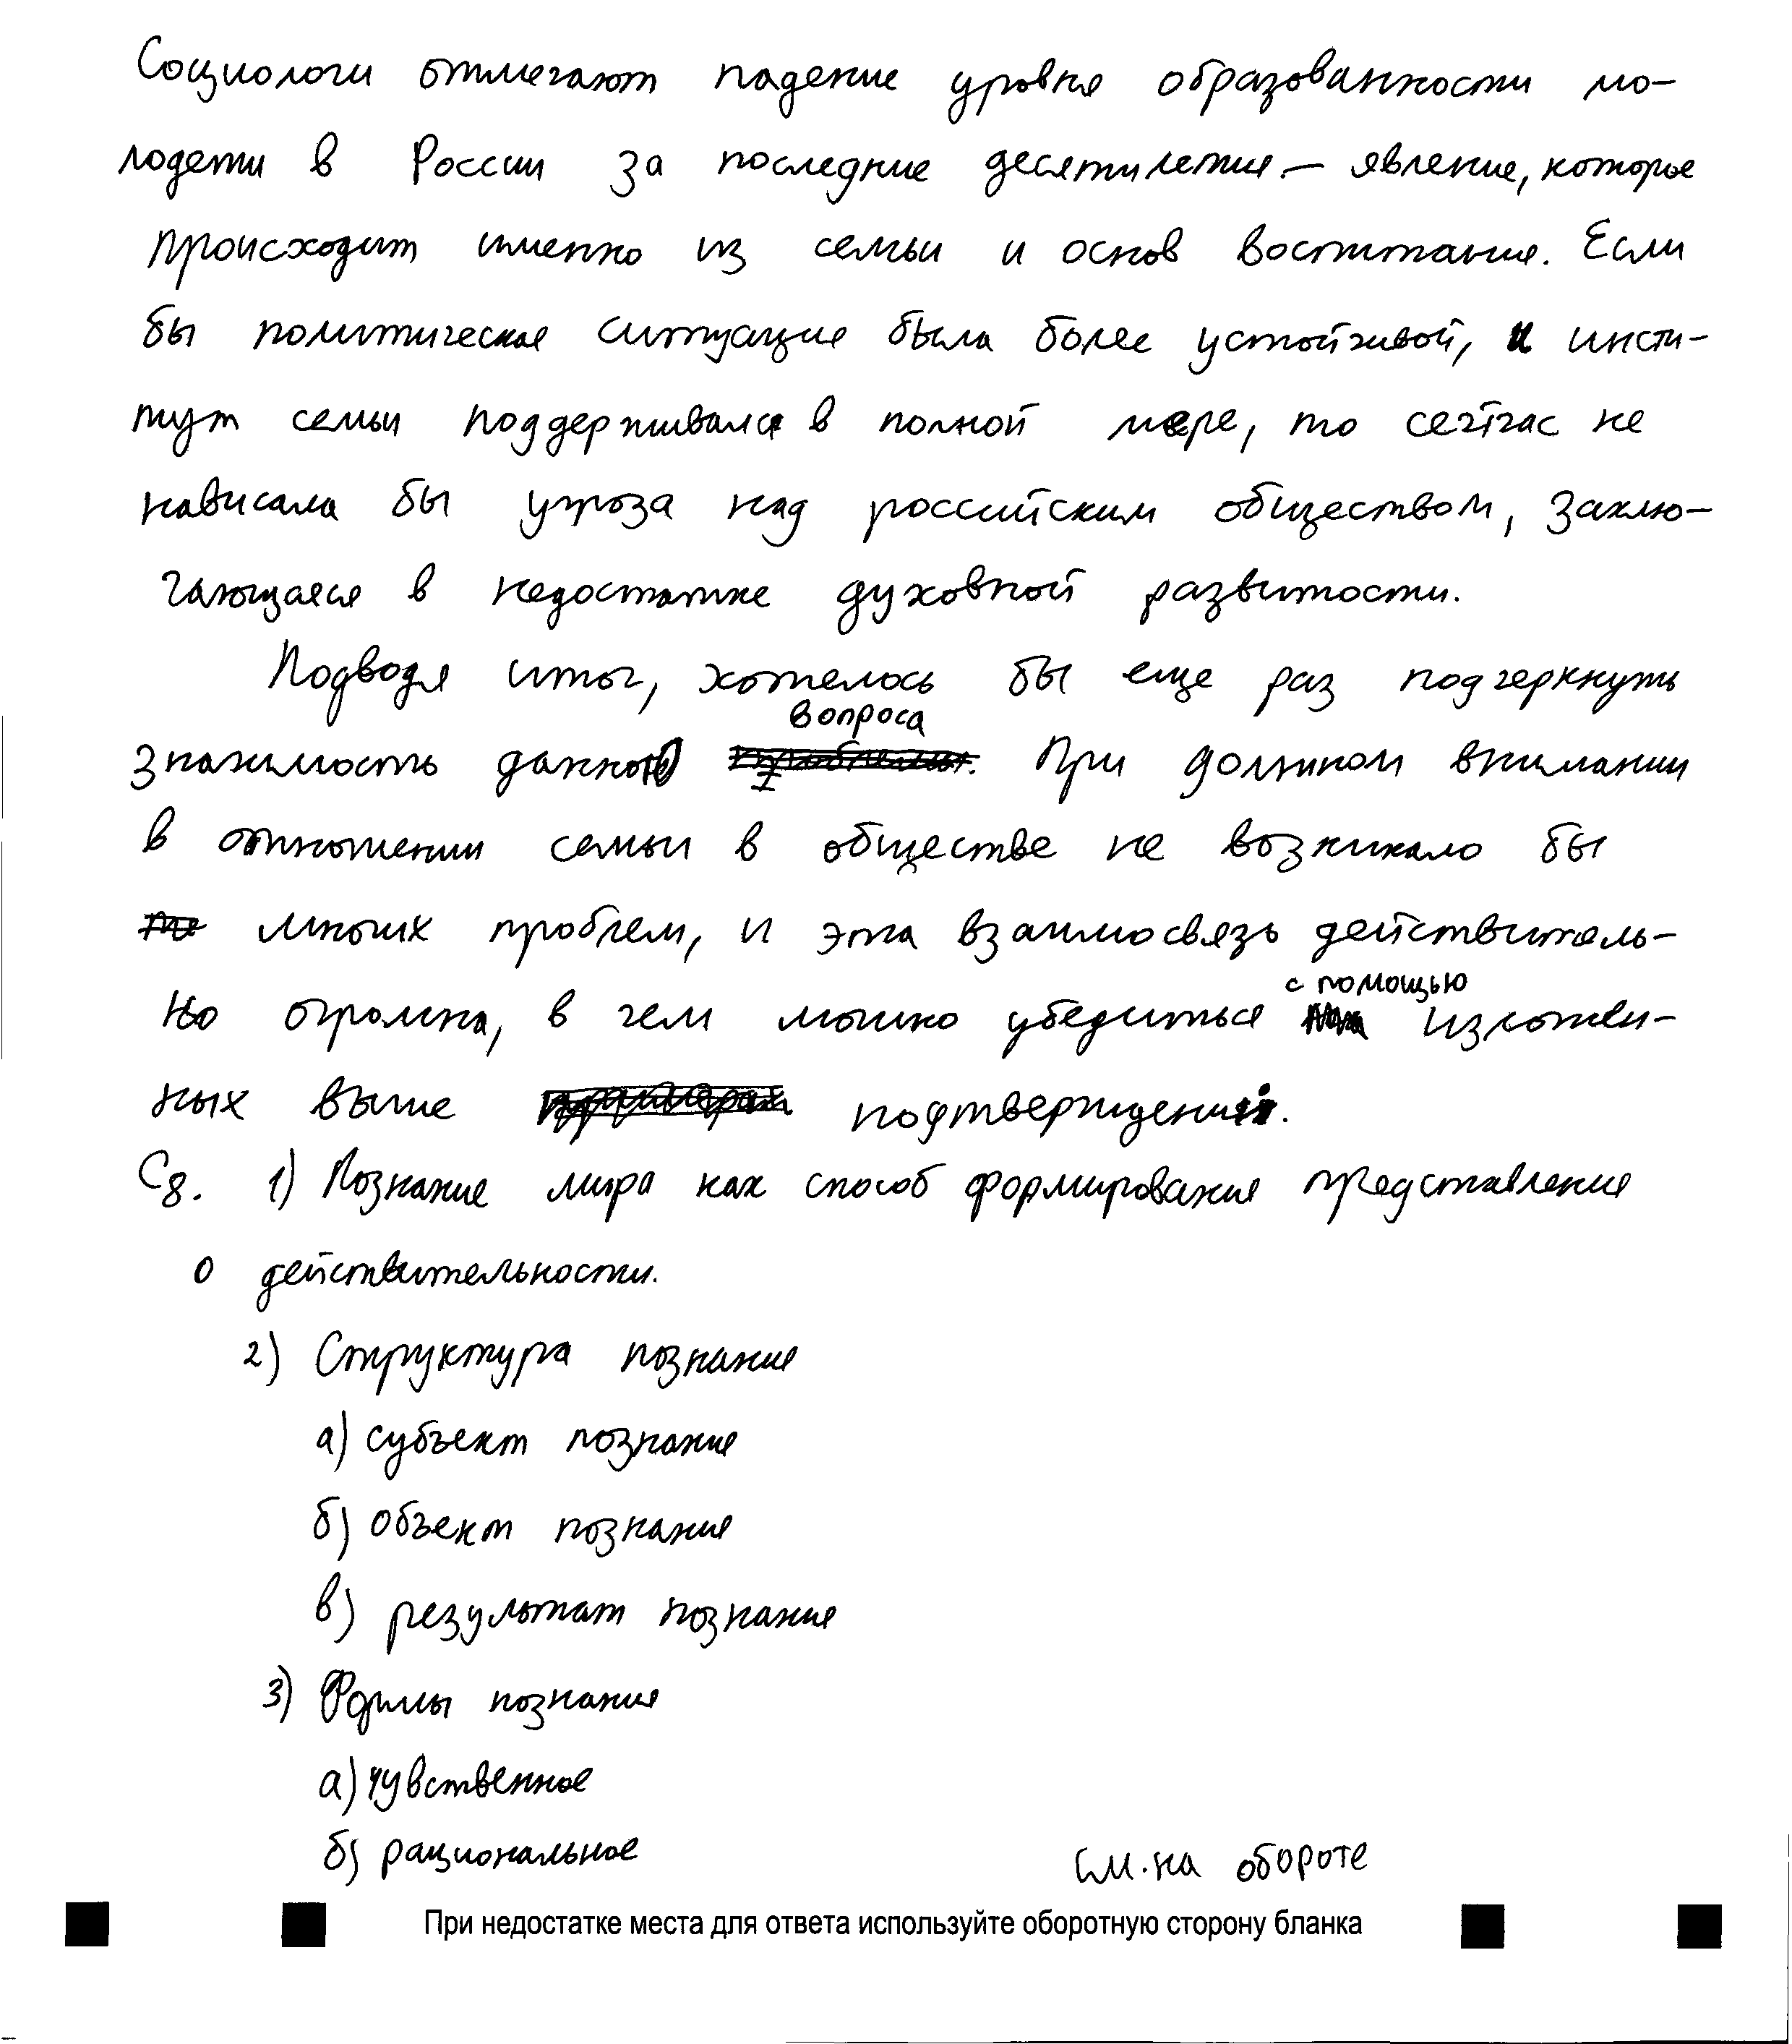 Социологи отмечают падение уровня образованности мо-
лодежи в России за последние десятилетия – явление, которое
происходит именно из семьи и основ воспитания. Если
бы политическая ситуация была более устойчивой, и инсти-
тут семьи поддерживался в полной мере, то сейчас не
нависала бы угроза над российским обществом, заклю-
чающаяся в недостатке духовной развитости.
Подводя итог, хотелось бы еще раз подчеркнуть
вопроса
значимость данного проблемы. При должном внимании
в отношении семьи в обществе не возникало бы
те многих проблем, и эта взаимосвязь действитель-
с помощью
но огромна, в чем можно убедиться на изложен-
ных выше примерах подтверждений.
С8. 1) Познание мира как способ формирования представления
о действительности.
2) Структура познания
а) субъект познания
б) объект познания
в) результат познания
3) Формы познания
а) чувственное
б) рациональное
См. на обороте
При недостатке места для ответа используйте оборотную сторону бланка